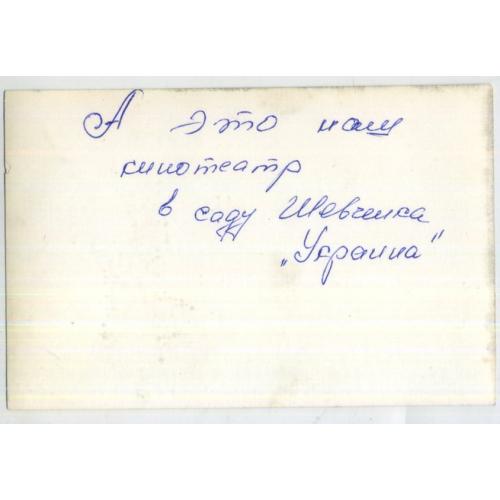 А это наш
кинотеатр
в саду Шевченка
„Украина"